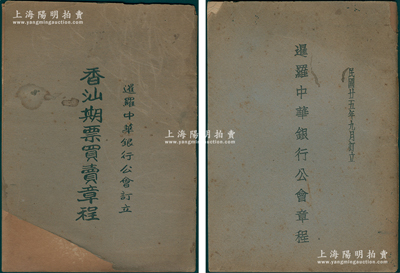 上海陽明拍賣
www.yangmingauction.com
暹羅中華銀行公會訂立
香汕期票買賣章程
上海陽明拍賣
www.yangmingauction.com
民國廿五年九月訂立
暹羅中華銀行公會章程
上海陽明拍賣
www.yangmingauction.com
上海陽明拍賣
www.yangmingauction.com